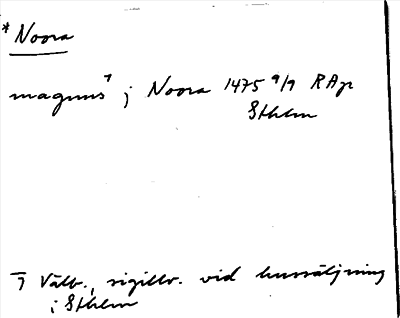 * Noora
magnus ⁊ i Noora 1475 9/9 RAp
Sthlm
⁊ Välb., sigillv. vid hussäljning
i Sthlm